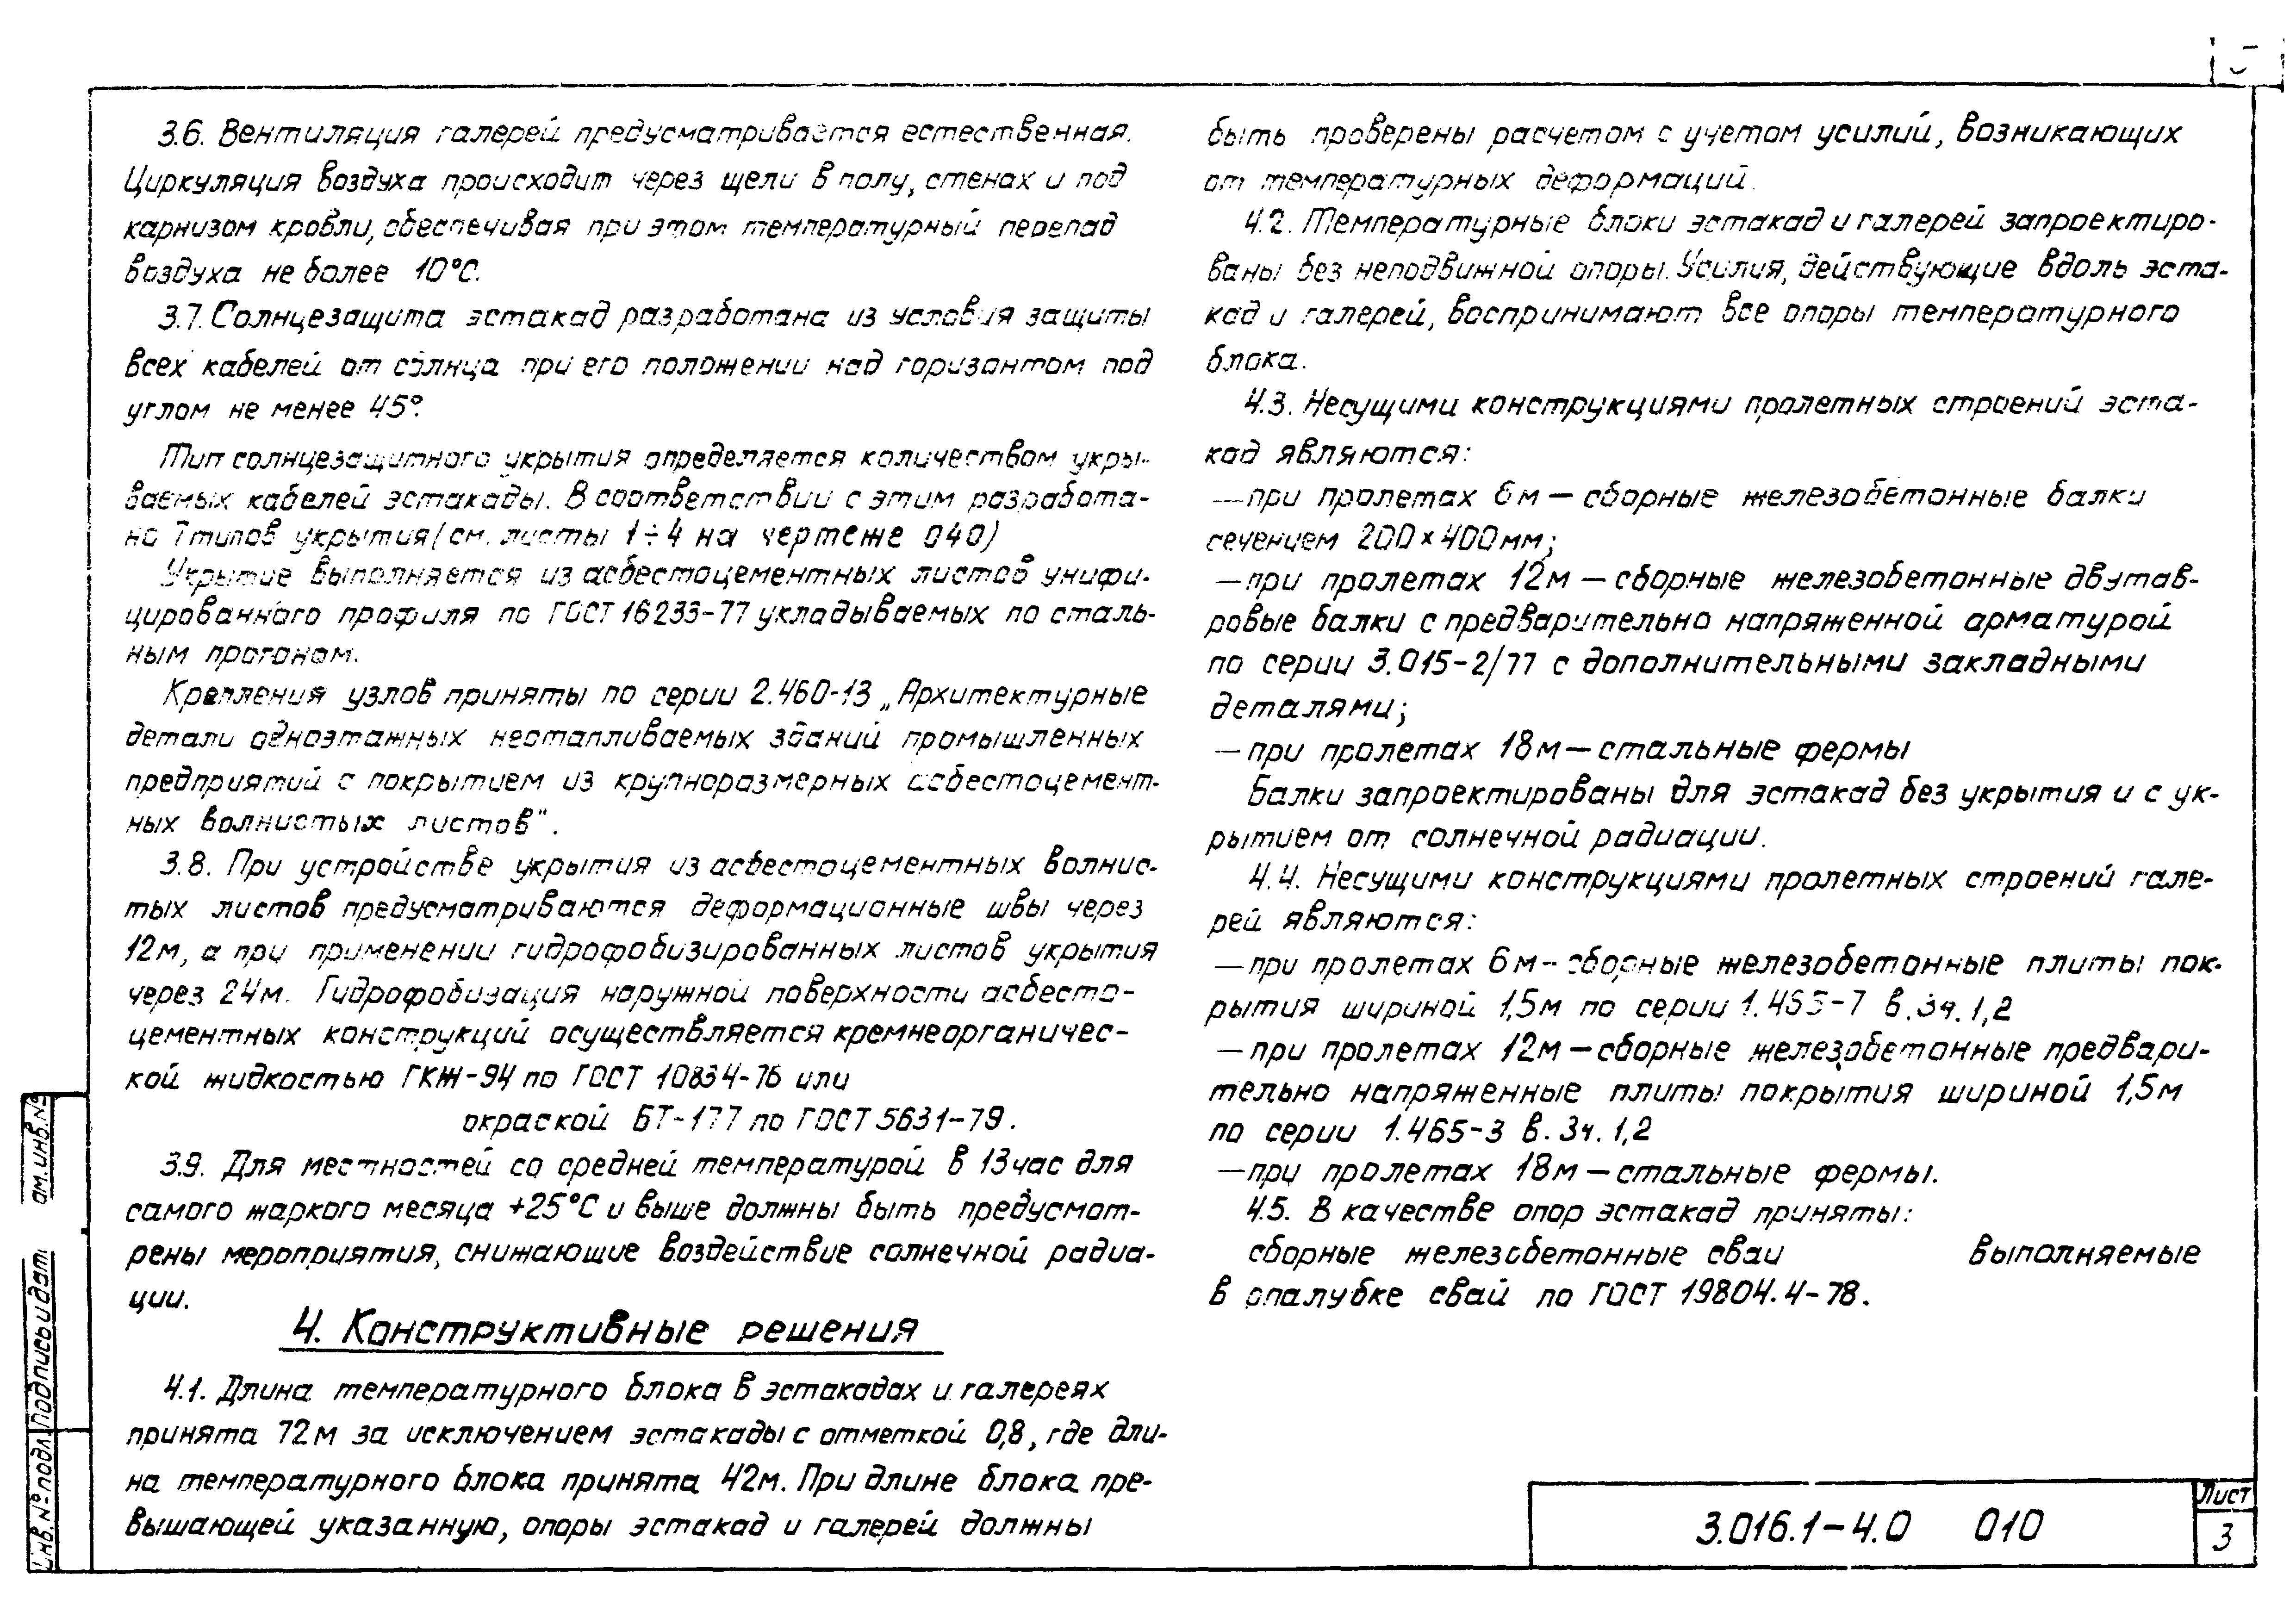 3.6. Вентиляция галерей предусматривается естественная.
Циркуляция воздуха происходит через щели в полу, стенах и под
карнизом кровли, обеспечивая при этом температурный перепад
воздуха не более 10°С.
3.7. Солнцезащита эстакад разработана из условия защиты
всех кабелей от солнца при его положении над горизонтом под
углом не менее 45°.
Тип солнцезащитного укрытия определяется количеством укры-
ваемых кабелей эстакады. В соответствии с этим разработа-
но 7 типов укрытия (см. листы 1÷4 на чертеже 040)
Укрытие выполняется из асбестоцементных листов унифи-
цированного профиля по ГОСТ 16233-77 укладываемых по сталь-
ным прогонам.
Крепления узлов приняты по серии 2.460-13 „Архитектурные
детали одноэтажных неотапливаемых зданий промышленных
предприятий с покрытием из крупноразмерных асбестоцемент-
ных волнистых листов".
3.8. При устройстве укрытия из асбестоцементных волнис-
тых листов предусматриваются деформационные швы через
12м, а при применении гидрофобизированных листов укрытия
через 24м. Гидрофобизация наружной поверхности асбесто-
цементных конструкций осуществляется кремнеорганичес-
кой жидкостью ГКЖ-94 по ГОСТ 10834-76 или
окраской БТ-177 по ГОСТ 5631-79.
3.9. Для местностей со средней температурой в 13 час для
самого жаркого месяца +25°С и выше должны быть предусмот-
рены мероприятия, снижающие воздействие солнечной радиа-
ции.
4. Конструктивные решения
4.1. Длина температурного блока в эстакадах и галереях
принята 72м за исключением эстакады с отметкой 0,8, где дли-
на температурного блока принята 42м. При длине блока пре-
вышающей указанную, опоры эстакад и галерей должны
быть проверены расчетом с учетом усилий, возникающих
от температурных деформаций.
4.2. Температурные блоки эстакад и галерей запроектиро-
ваны без неподвижной опоры. Усилия, действующие вдоль эста-
кад и галерей, воспринимают все опоры температурного
блока.
4.3. Несущими конструкциями пролетных строений эста-
кад являются:
—при пролетах 6м — сборные железобетонные балки
сечением 200×400мм;
—при пролетах 12м — сборные железобетонные двутав-
ровые балки с предварительно напряженной арматурой
по серии 3.015-2/77 с дополнительными закладными
деталями;
—при пролетах 18м — стальные фермы
Балки запроектированы для эстакад без укрытия и с ук-
рытием от солнечной радиации.
4.4. Несущими конструкциями пролетных строений гале-
рей являются:
—при пролетах 6м - сборные железобетонные плиты пок-
рытия шириной 1,5м по серии 1.465-7 в. 3ч. 1,2
—при пролетах 12м — сборные железобетонные предвари-
тельно напряженные плиты покрытия шириной 1,5м
по серии 1.465-3 в. 3ч. 1,2
—при пролетах 18м — стальные фермы.
4.5. В качестве опор эстакад приняты:
сборные железобетонные сваи выполняемые
в опалубке свай по ГОСТ 19804.4-78.
3.016.1-4.0 010
Лист
3
ам. инв. №
Подпись и дат
Инв. № подл